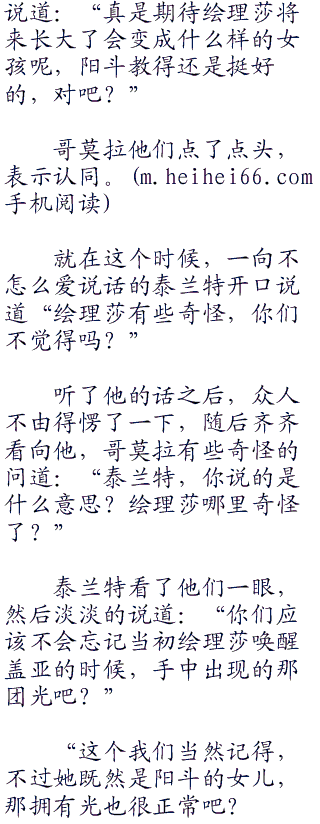 说道：“真是期待绘理莎将
来长大了会变成什么样的女
孩呢，阳斗教得还是挺好
的，对吧？”
哥莫拉他们点了点头，
表示认同。(m.heihei66.com
手机阅读)
就在这个时候，一向不
怎么爱说话的泰兰特开口说
道“绘理莎有些奇怪，你们
不觉得吗？”
听了他的话之后，众人
不由得愣了一下，随后齐齐
看向他，哥莫拉有些奇怪的
问道：“泰兰特，你说的是
什么意思？绘理莎哪里奇怪
了？”
泰兰特看了他们一眼，
然后淡淡的说道：“你们应
该不会忘记当初绘理莎唤醒
盖亚的时候，手中出现的那
团光吧？”
“这个我们当然记得，
不过她既然是阳斗的女儿，
那拥有光也很正常吧？